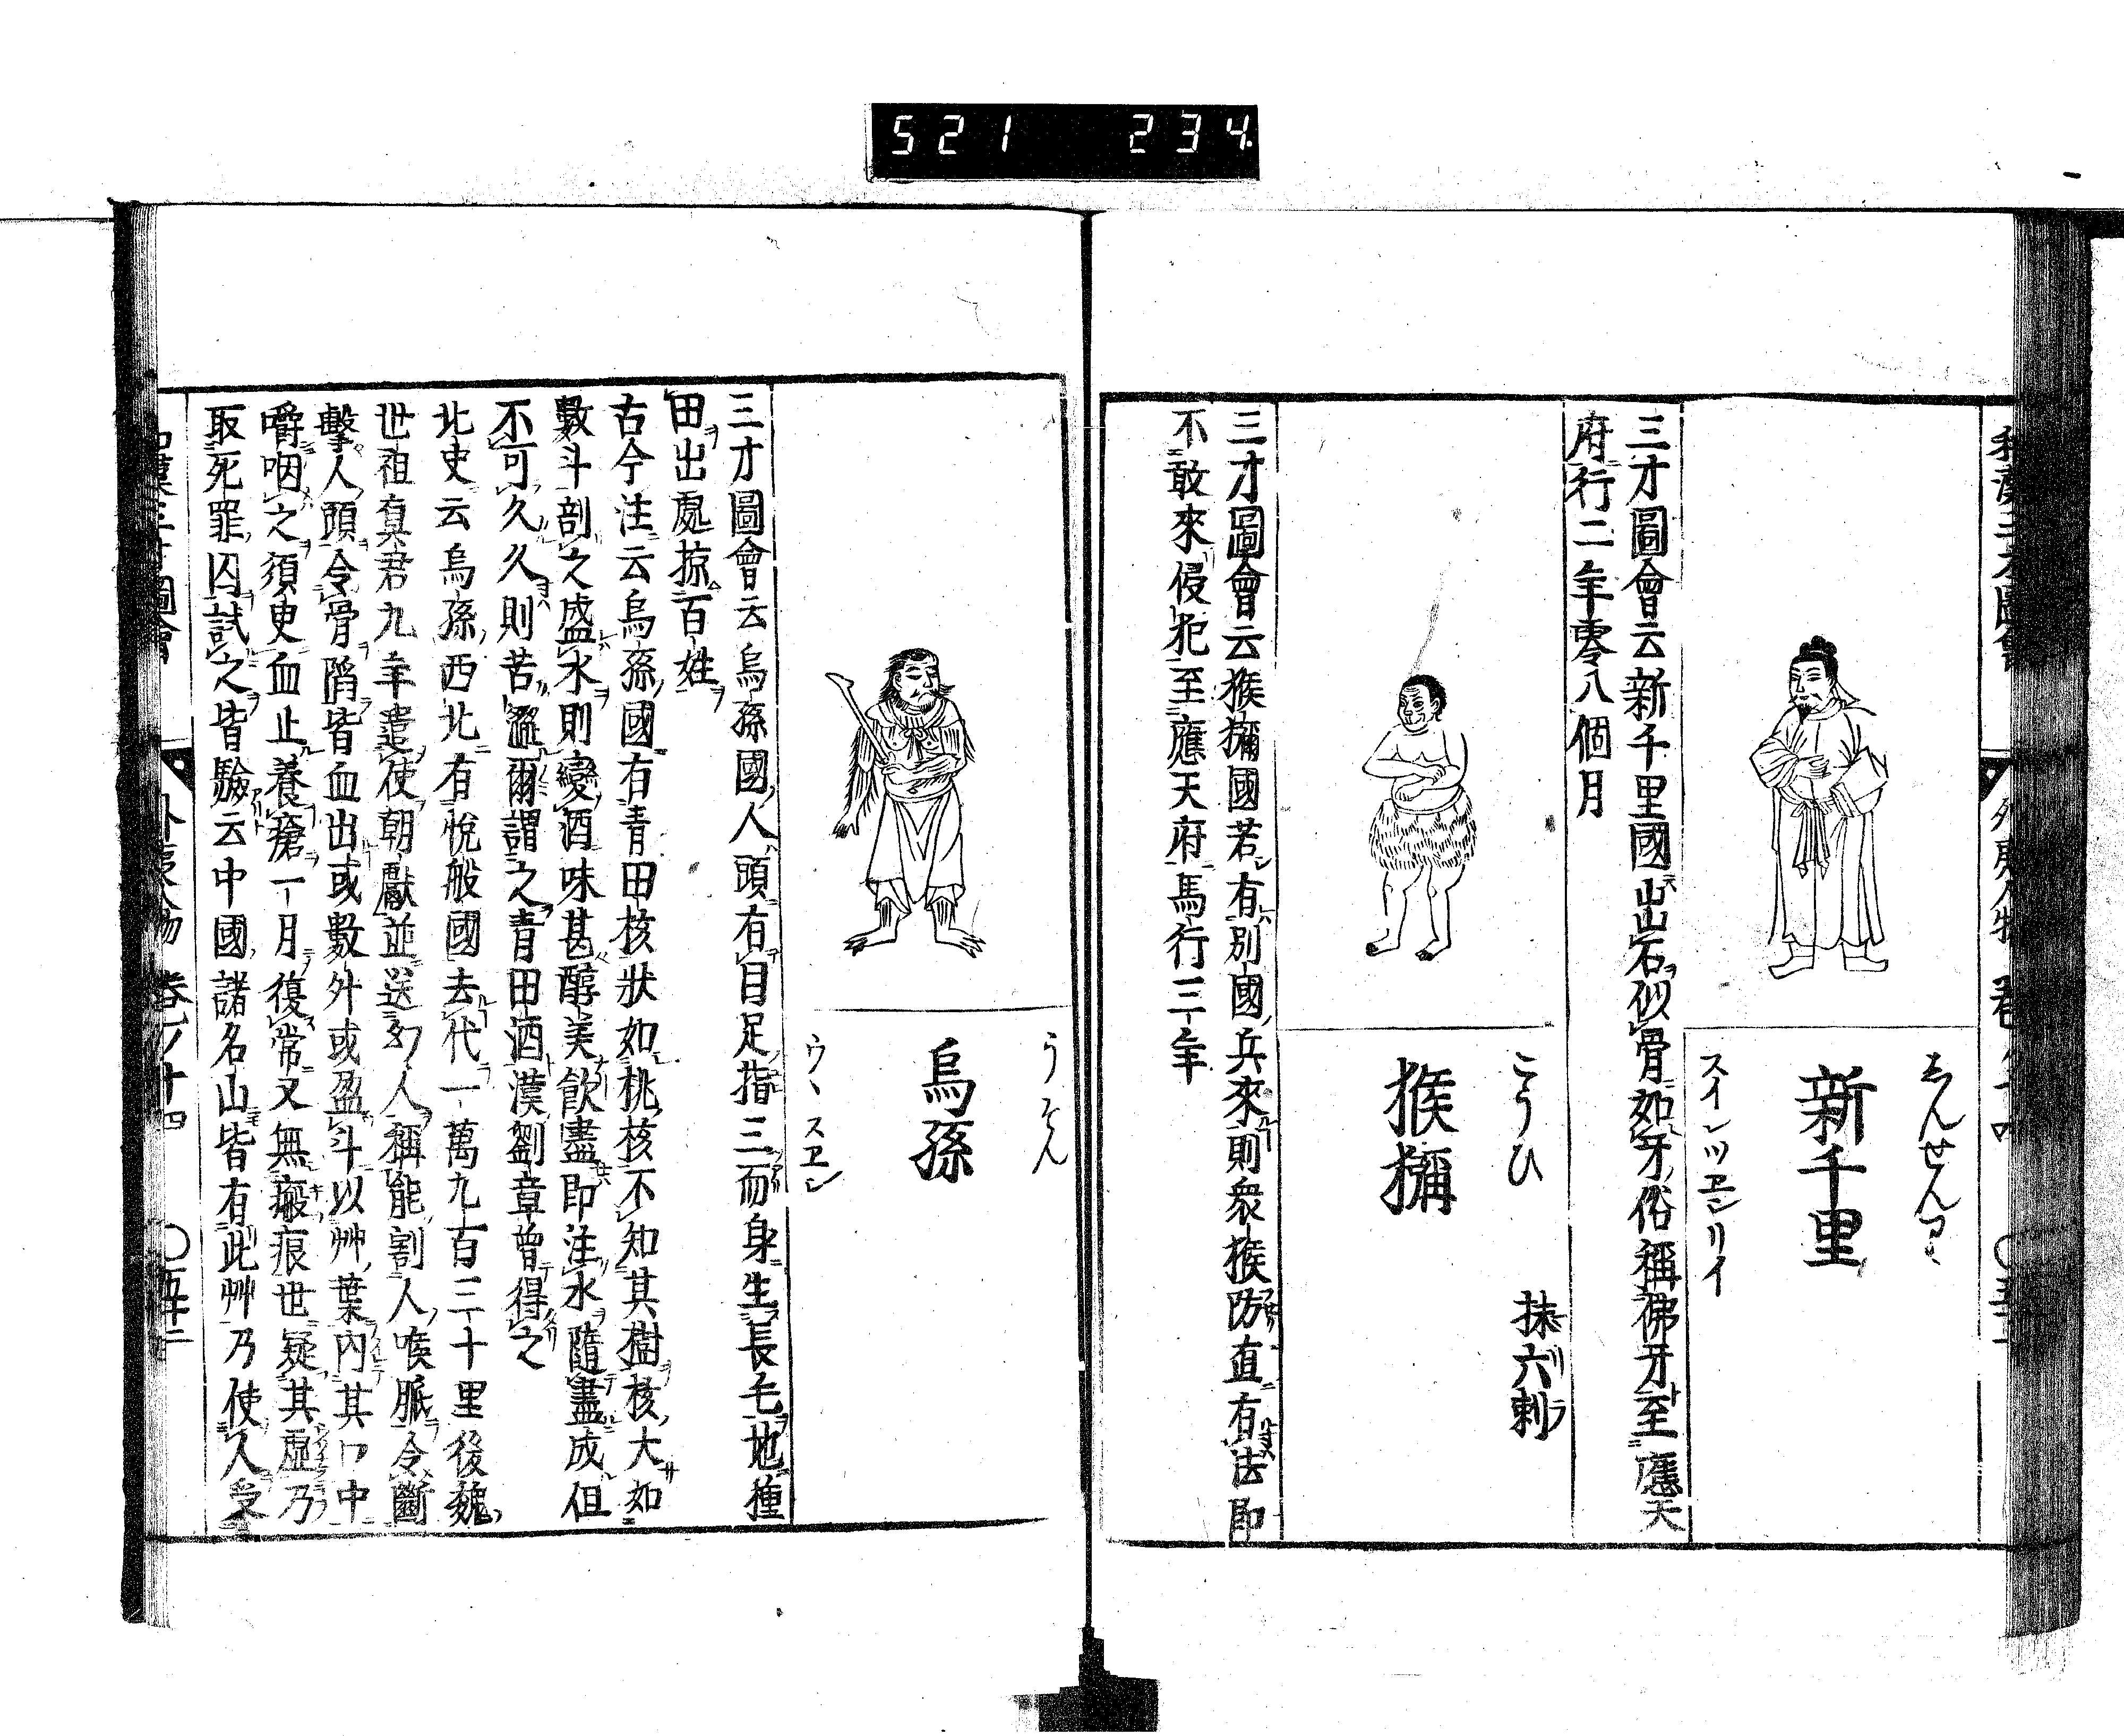 521 234
和漢三才圖會
外夷人物 卷ノ十四
しんせんり
新千里
スインツヱンリイ
三才圖會云新千里國山出石似骨如牙俗稱佛牙至應天
府行二年零八個月
こうひ
猴㺍
抹六剌
三才圖會云猴㺍國若有別國兵來則衆猴防直有法即
不敢來侵犯至應天府馬行三年
うそん
烏孫
ウヽスヱン
三才圖會云烏孫國人頭有目足指三而身生長毛地種
田出處掠百姓
古今注云烏孫國有青田核狀如桃核不知其樹核大如
數斗剖之盛水則變酒味甚醇美飲盡即注水隨盡成但
不可久久則苦澀爾謂之青田酒漢劉章曾得之
北史云烏孫西北有悅般國去代一萬九百三十里後魏
世祖真君九年遣使朝獻並送幻人稱能割人喉脈令斷
擊人頭令骨陷皆血出或數升或盈斗以艸葉內其口中
嚼咽之須史血止養瘡一月復常又無瘢痕世疑其虛乃
取死罪囚試之皆驗云中國諸名山皆有此艸乃使人受
和漢三才圖會
外夷人物 卷ノ十四
〇五十二